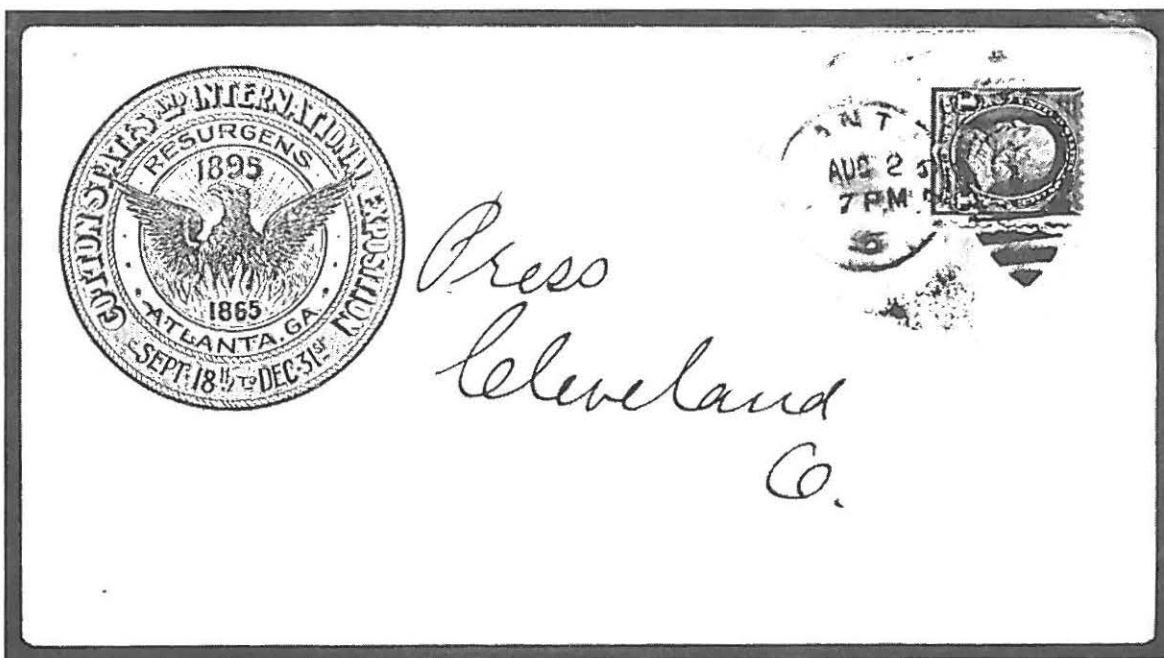 COTTON STATES AND INTERNATIONAL EXPOSITION
RESURGENS
1895
1865
ATLANTA, GA.
SEPT. 18TH TO DEC. 31ST
ANT
AUG 25
7 PM
5
Press
Cleveland
O.